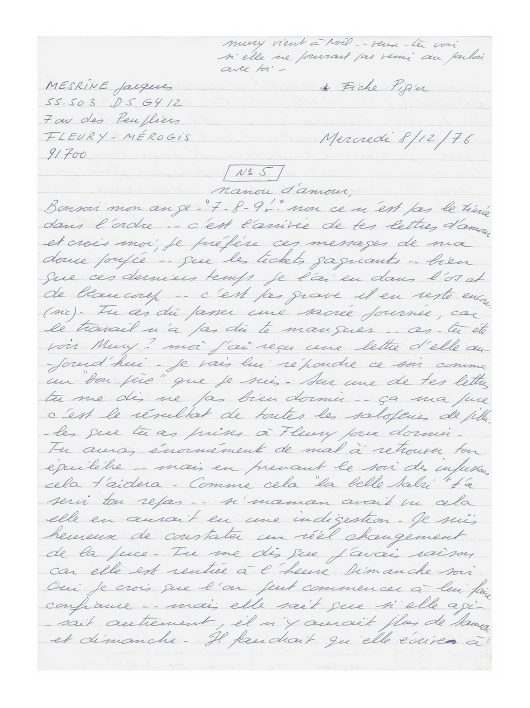 Mury vient à Noël -- veux-tu voir
si elle ne pourrait pas venir au parloir
avec toi -
MESRINE Jacques * Fiche Pigier
55 503 D5 G4 12
7 av des Peupliers
FLEURY-MÉROGIS Mercredi 8/12/76
91700
N° 5
nanou d'amour,
Bonsoir mon ange - "7-8-9!" non ce n'est pas le tiercé
dans l'ordre -- c'est l'arrivée de tes lettres d'amour
et crois moi, je préfère ces messages de ma
douce poupée -- que les tickets gagnants -- bien
que ces derniers temps je l'ai eu dans l'os et
de beaucoup -- c'est pas grave il en reste encore
(sic) - Tu as dû passer une sacrée journée, car
le travail n'a pas dû te manquer -- as-tu été
voir Mury? moi j'ai reçu une lettre d'elle au-
-jourd'hui - je vais lui répondre ce soir comme
un "bon père" que je suis - Sur une de tes lettres
tu me dis ne pas bien dormir -- ça ma puce
c'est le résultat de toutes les saloperies de pilu-
-les que tu as prises à Fleury pour dormir -
Tu auras énormément de mal à retrouver ton
équilibre -- mais en prenant le soir des infusions
cela t'aidera - Comme cela "la belle Sabri" t'a
servi ton repas -- si maman avait vu cela
elle en aurait eu une indigestion - Je suis
heureux de constater un réel changement
de la puce - Tu me dis que j'avais raison
car elle est rentrée à l'heure Dimanche soir
Oui je crois que l'on peut commencer à leur faire
confiance -- mais elle sait que si elle agis-
-sait autrement, il n'y aurait plus de
et dimanche - Il faudrait qu'elle à